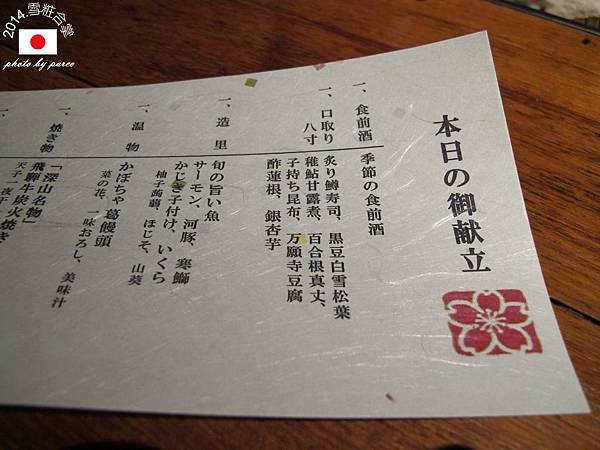 本日の御献立
一、食前酒
季節の食前酒
一、口取り
八寸
炙り鱒寿司、黒豆白雪松葉
稚鮎甘露煮、百合根真丈、
子持ち昆布、万願寺豆腐
酢蓮根、銀杏芋
一、造里
旬の旨い魚
サーモン、河豚、寒鰤
かじき子付け、いくら
柚子蒟蒻、ほじそ、山葵
一、温物
かぼちゃ葛饅頭
菜の花、一味おろし、美味汁
一、焼き物
「深山名物」
飛騨牛炭火焼き
2014.雪粧合掌
photo by parco